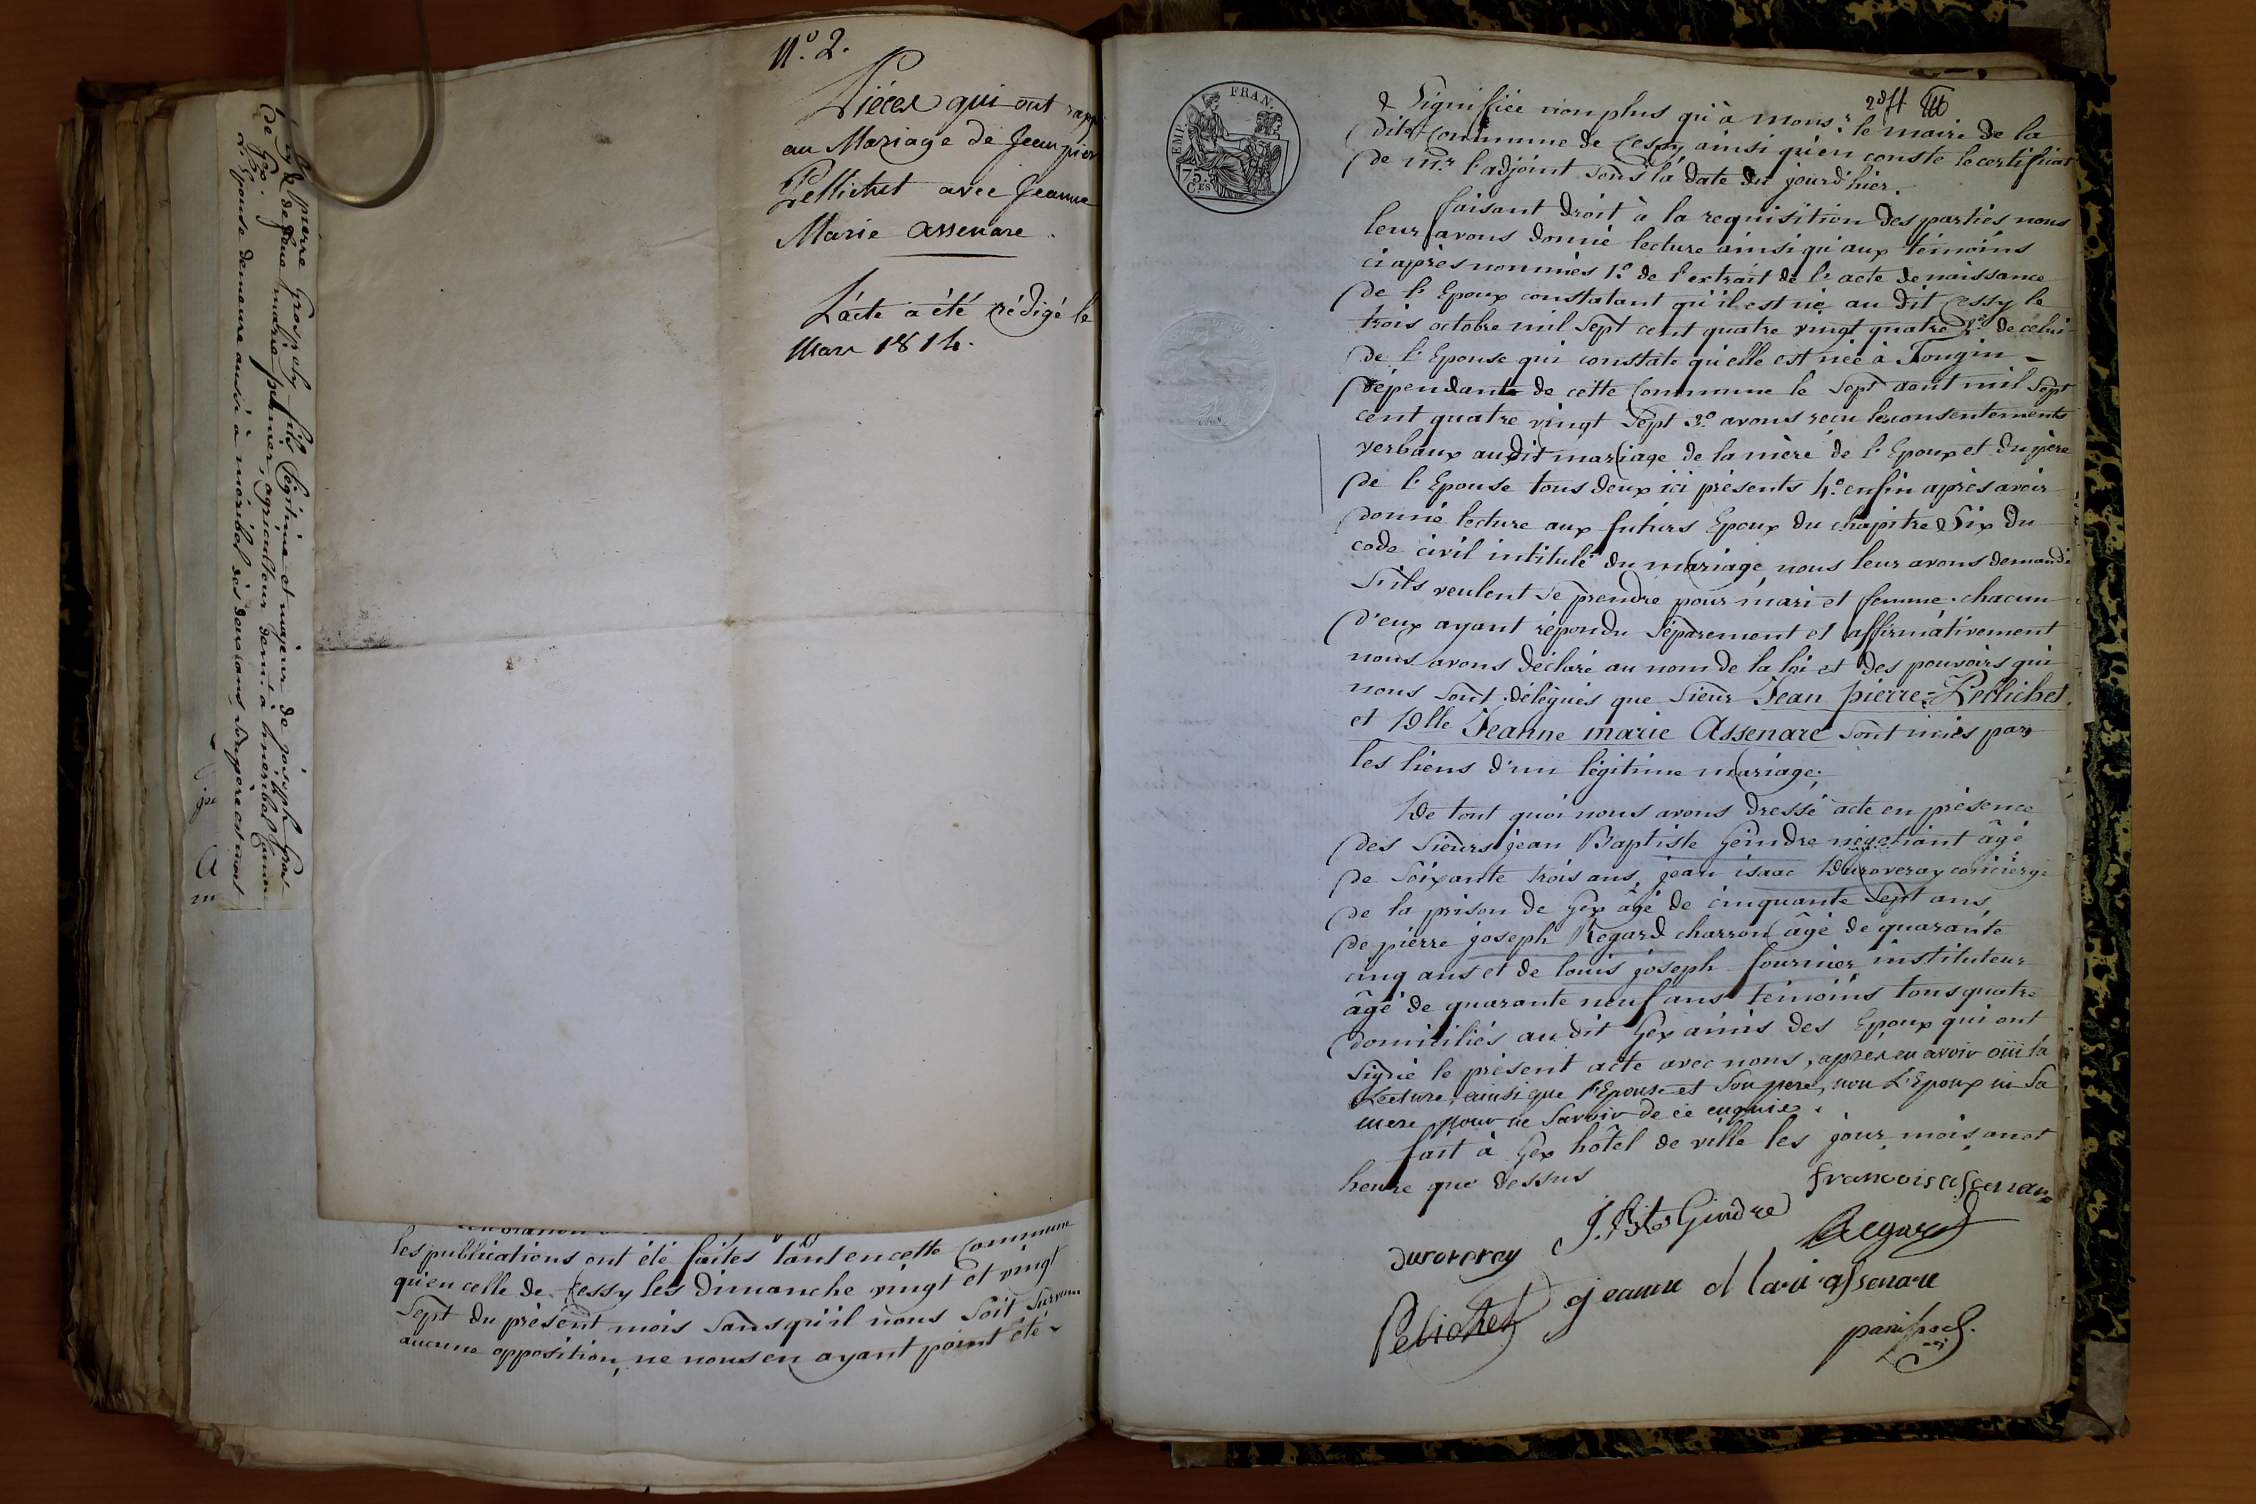 N.o 2.
Pièces qui ont rapp
au Mariage de Jean pier
Pellichet avec Jeanne
Marie assenare.
L'acte a été rédigé le
Mars 1814.
pierre Grospely fils légitime et majeur de joiseph Gros
de jeane marie panier, agriculteur demt. à
de Gex.
L'Epouse demeure aussi à méribel dès deux ans, son père est mort
les publications ont été faites tant en cette Commune
qu'en celle de Cessy les dimanche vingt et vingt
sept du présent mois sans qu'il nous soit surven
aucune opposition, ne nous en ayant point été
EMP. FRAN.
75
CES
2d ft
& signifiée non plus qu'à Monsr. le maire de la
dite Commune de Cessy ainsi qu'en conste le certificat
de mr. l'adjoint sous la date du jourd'hier.
faisant droit à la requisition des parties nous
leur avons donné lecture ainsi qu'aux témoins
ci après nommés 1o. de l'extrait de l'acte de naissance
de l'Epoux constatant qu'il est né au dit Cessy le
trois octobre mil sept cent quatre vingt quatre 2o. de celui
de l'Epouse qui constate qu'elle est née à Tougin
dépendante de cette Commune le sept aout mil sept
cent quatre vingt sept 3o. avons reçu les consentements
verbaux audit mariage de la mère de l'Epoux et du père
de l'Epouse tous deux ici présents 4o. enfin après avoir
donné lecture aux futurs Epoux du chapitre Six du
code civil intitulé du mariage, nous leur avons demandé
s'ils veulent se prendre pour mari et femme. chacun
d'eux ayant répondu séparement et affirmativement
nous avons déclaré au nom de la loi et des pouvoirs qui
nous sont délégués que Sieur Jean pierre Pellichet
et Dlle Jeanne marie Assenare sont unis par
les liens d'un légitime mariage;
De tout quoi nous avons dressé acte en présence
des Sieurs jean Baptiste Geindre négotiant âgé
de soixante trois ans, jean isaac Duroveray concierge
de la prison de Gex âgé de cinquante sept ans,
de pierre joseph Regard charron âgé de quarante
cinq ans et de louis joseph fournier instituteur
âgé de quarante neuf ans témoins tous quatre
domiciliés au dit Gex amis des Epoux qui ont
signé le présent acte avec nous, après en avoir oüi la
Lecture, ainsi que l'Epouse et Son pere, non L'Epoux ni Sa
mere, pour ne Savoir de ce enquis.
fait à Gex hôtel de ville les jour mois an et
heure que dessus
françois assenare
J. Bte Gindre
duroveray
Regard
jeanne Marie assenare
Pelichet